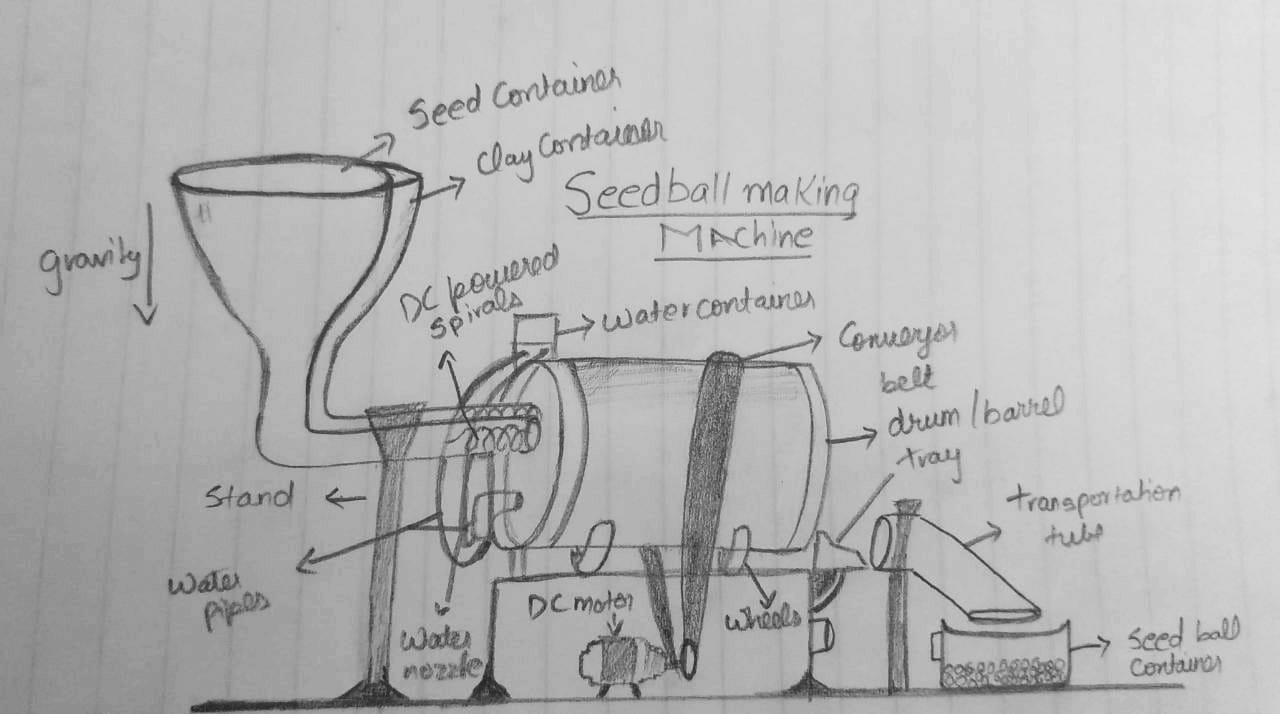 Seed Container
Clay Container
Seedball making
MAchine
gravity
DC powered
spirals
Water container
Conveyor
belt
drum/barrel
tray
Stand
transportation
tube
Water
pipes
DC motor
Wheels
Water
nozzle
Seed ball
Container